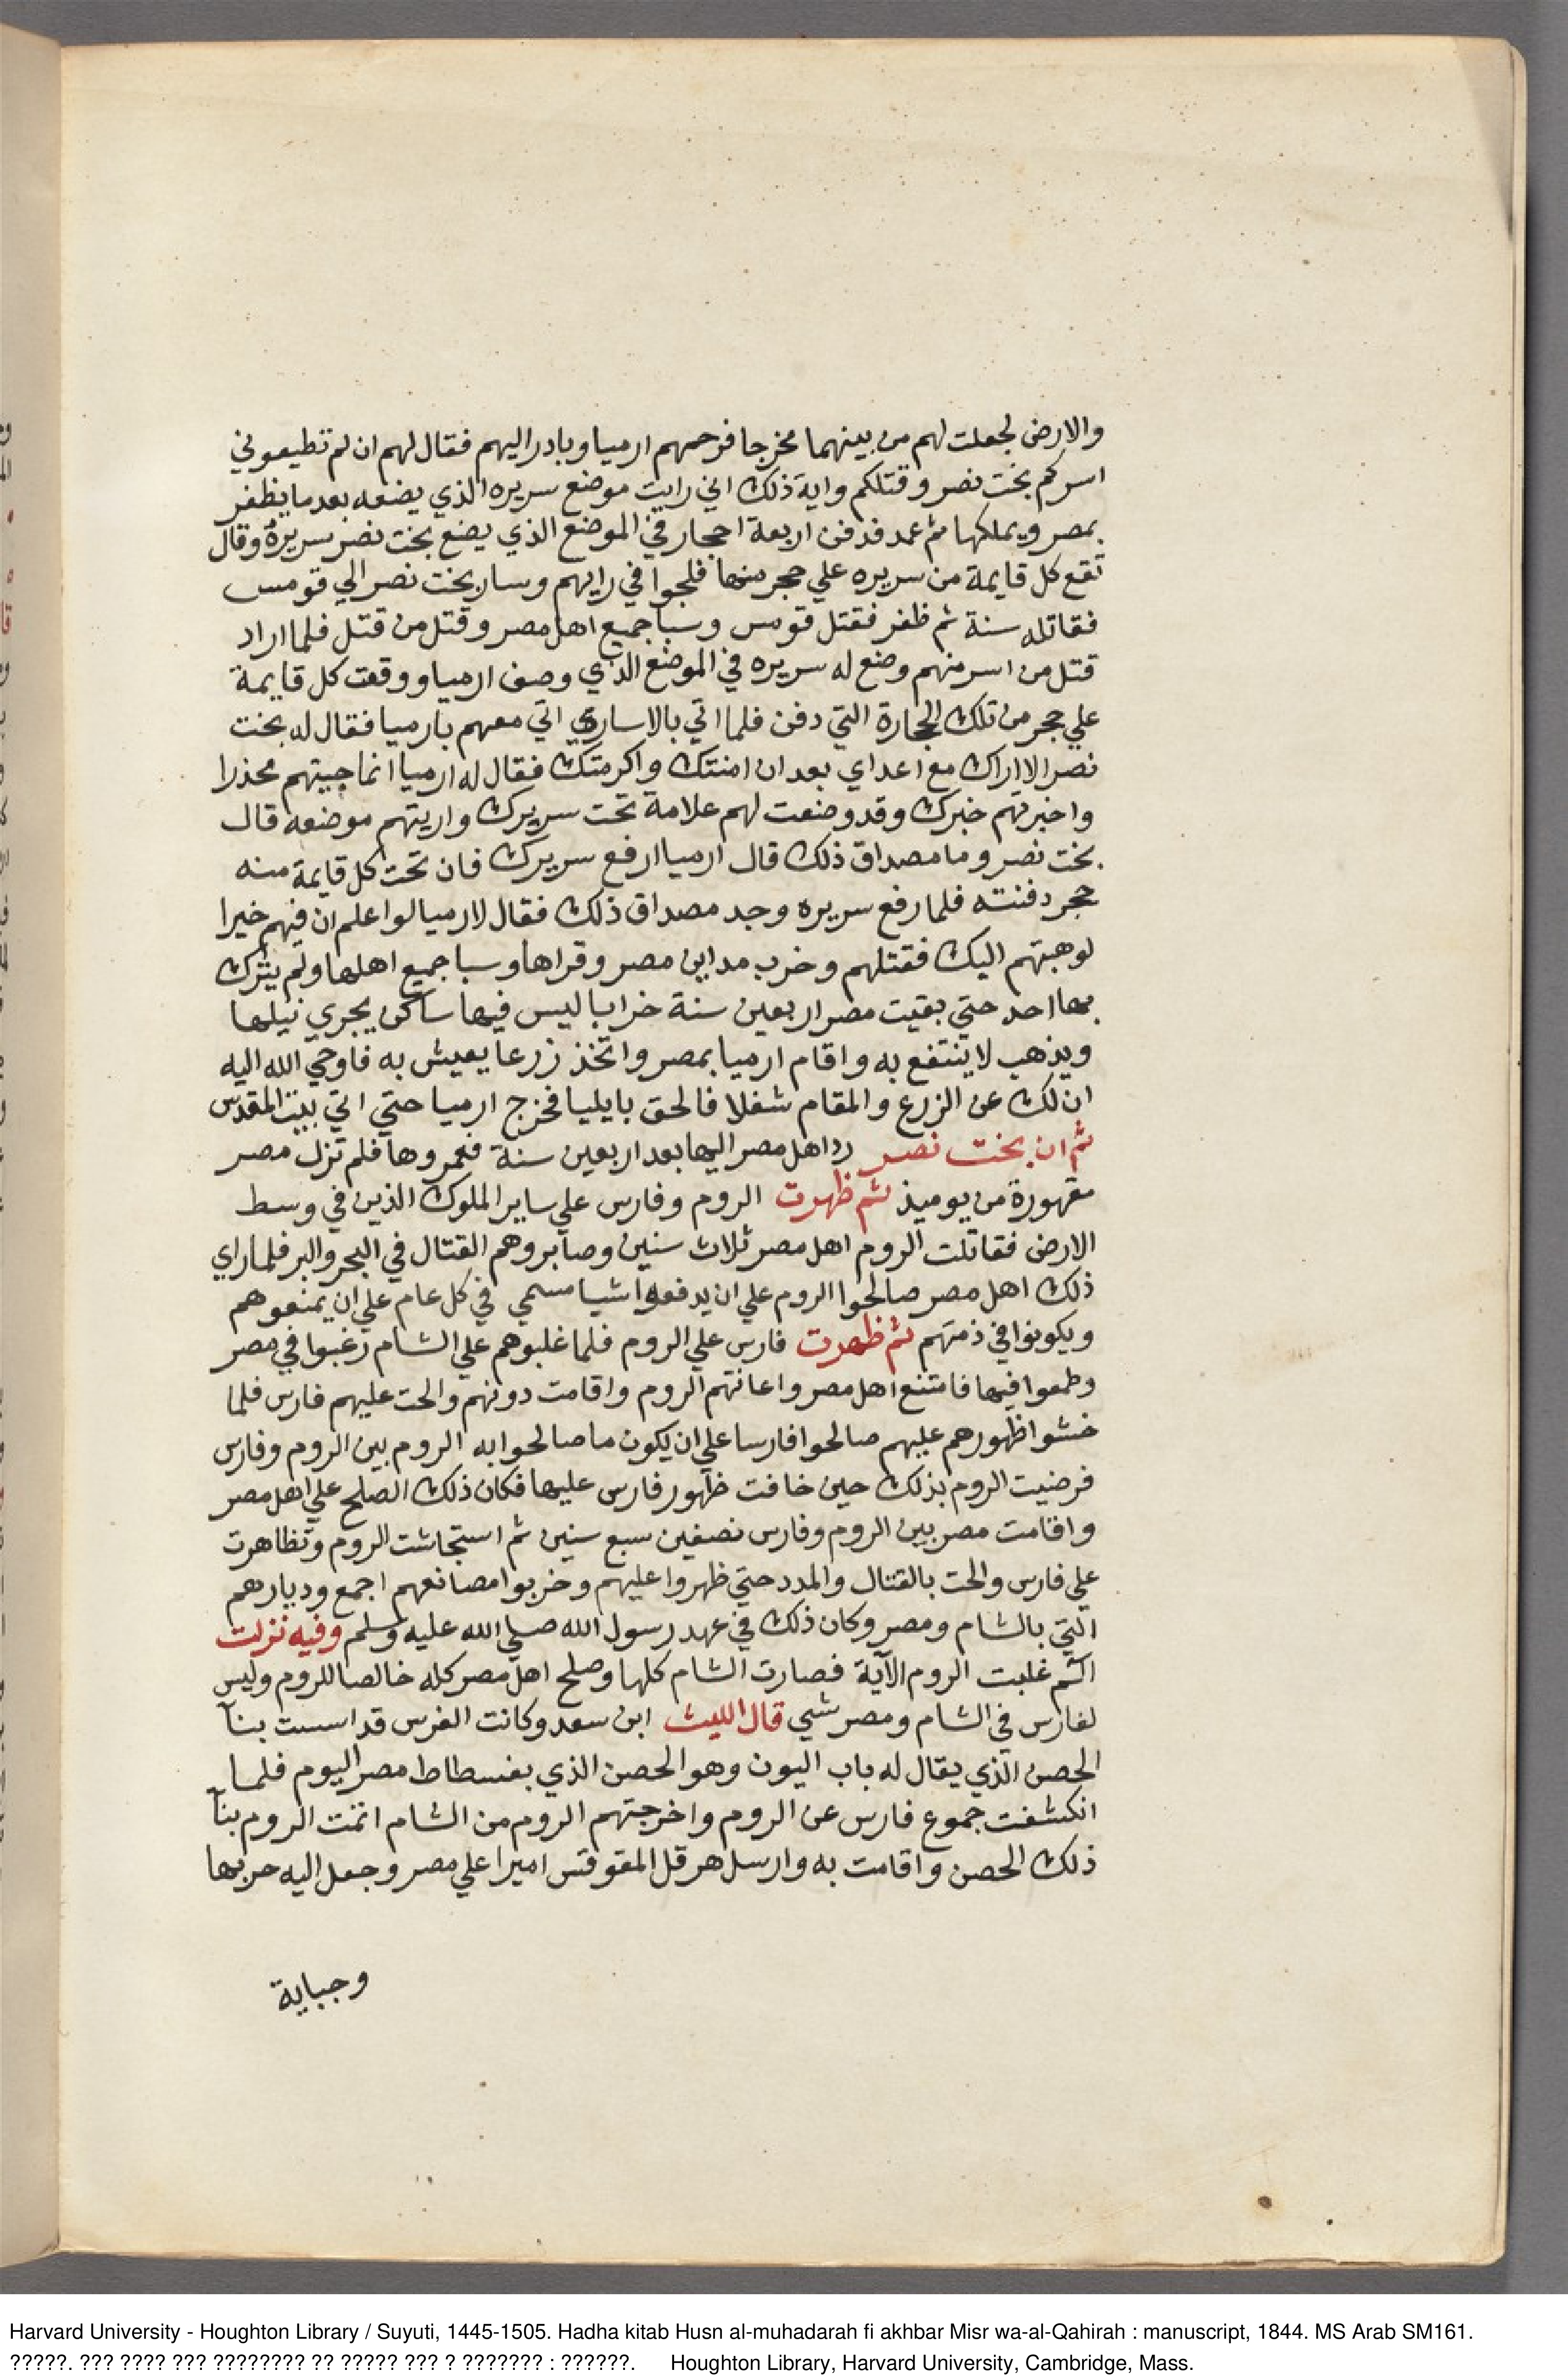 والارض لجعلت لهم من بينهما مخرجا فرحمهم ارميا وبادر اليهم فقال لهم ان لم تطيعوني
اسركم بخت نصر وقتلكم واية ذلك اني رايت موضع سريره الذي يضعه بعد ما يظفر
بمصر ويملكها ثم عمد فدفن اربعة احجار في الموضع الذي يضع بخت نصر سريره وقال
تقع كل قايمة من سريره علي حجر منها فلجوا في رايهم وسار بخت نصر الي قومس
فقاتله سنة ثم ظفر فقتل قومس وسبا جميع اهل مصر وقتل من قتل فلما اراد
قتل من اسر منهم وضع له سريره في الموضع الذي وصف ارميا ووقعت كل قايمة
علي حجر من تلك الحجارة التي دفن فلما اتي بالاساري اتي معهم بارميا فقال له بخت
نصر الا اراك مع اعداي بعد ان امنتك واكرمتك فقال له ارميا انما جيتهم محذرا
واخبرتهم خبرك وقد وضعت لهم علامة تحت سريرك واريتهم موضعه قال
بخت نصر وما مصداق ذلك قال ارميا ارفع سريرك فان تحت كل قايمة منه
حجر دفنته فلما رفع سريره وجد مصداق ذلك فقال لارميا لو اعلم ان فيهم خيرا
لوهبتهم اليك فقتلهم وخرب مداين مصر وقراها وسبا جميع اهلها ولم يترك
بها احد حتي بقيت مصر اربعين سنة خرابا ليس فيها ساكن يجري نيلها
ويذهب لا ينتفع به واقام ارميا بمصر واتخذ زرعا يعيش به فاوحي الله اليه
ان لك عن الزرع والمقام شغلا فالحق بايليا فخرج ارميا حتي اتي بيت المقدس
ثم ان بخت نصر رد اهل مصر اليها بعد اربعين سنة فعمروها فلم تزل مصر
مقهورة من يوميذ ثم ظهرت الروم وفارس علي ساير الملوك الذين في وسط
الارض فقاتلت الروم اهل مصر ثلاث سنين وصابروهم القتال في البحر والبر فلما راي
ذلك اهل مصر صالحوا الروم علي ان يدفعوا شيا مسمي في كل عام علي ان يمنعوهم
ويكونوا في ذمتهم ثم ظهرت فارس علي الروم فلما غلبوهم علي الشام رغبوا في مصر
وطمعوا فيها فامتنع اهل مصر واعانتهم الروم واقامت دونهم والحت عليهم فارس فلما
خشوا ظهورهم عليهم صالحوا فارسا علي ان يكون ما صالحوا به الروم بين الروم وفارس
فرضيت الروم بذلك حين خافت ظهور فارس عليها فكان ذلك الصلح علي اهل مصر
واقامت مصر بين الروم وفارس نصفين سبع سنين ثم استجاشت الروم وتظاهرت
علي فارس والحت بالقتال والمدد حتي ظهروا عليهم وخربوا مصانعهم اجمع وديارهم
التي بالشام ومصر وكان ذلك في عهد رسول الله صلي الله عليه وسلم وفيه نزلت
الم غلبت الروم الآية فصارت الشام كلها وصلح اهل مصر كله خالصا للروم وليس
لفارس في الشام ومصر شي قال الليث ابن سعد وكانت الفرس قد اسست بنآ
الحصن الذي يقال له باب اليون وهو الحصن الذي بفسطاط مصر اليوم فلما
انكشفت جموع فارس عن الروم واخرجتهم الروم من الشام اتمت الروم بنآ
ذلك الحصن واقامت به وارسل هرقل المقوقس اميرا علي مصر وجعل اليه حربها
وجباية
Harvard University - Houghton Library / Suyuti, 1445-1505. Hadha kitab Husn al-muhadarah fi akhbar Misr wa-al-Qahirah : manuscript, 1844. MS Arab SM161.
?????. ??? ???? ??? ???????? ?? ????? ??? ? ??????? : ??????. Houghton Library, Harvard University, Cambridge, Mass.